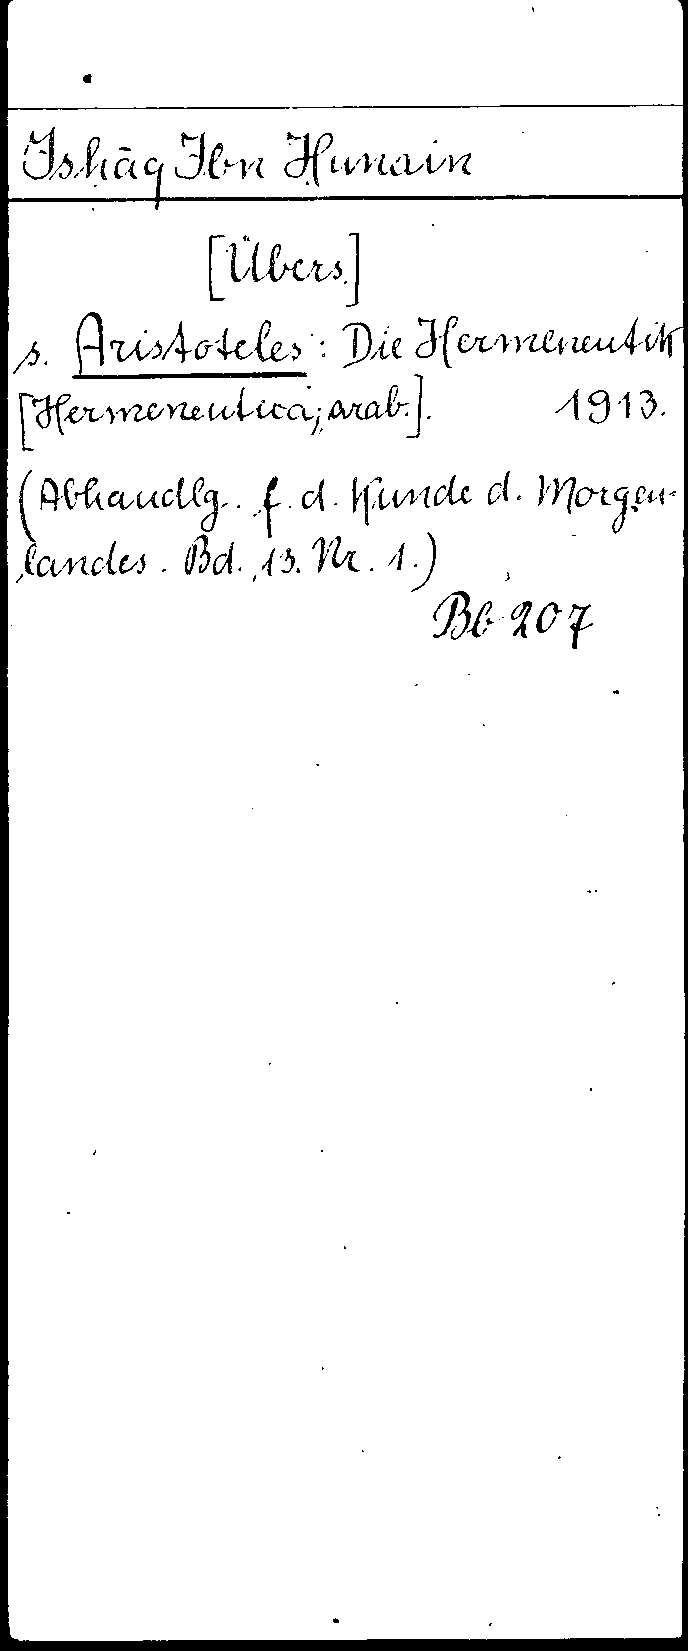 Ishāq Ibn Hunain
[Übers.]
s. Aristoteles: Die Hermeneutik
[Hermeneutica; arab.]. 1913.
(Abhandlg. f. d. Kunde d. Morgen-
landes. Bd. 13. Nr. 1.)
Bb 207